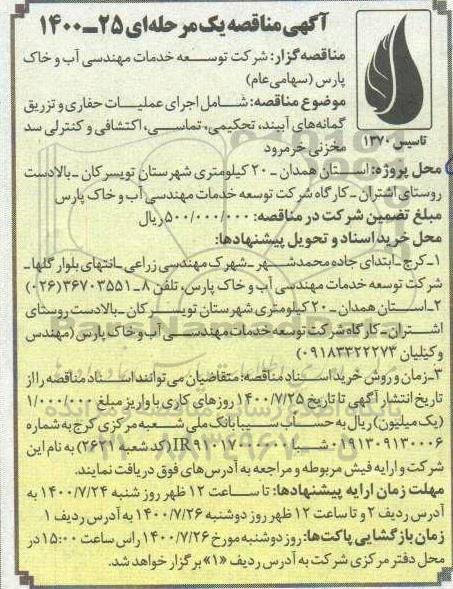 آگهی مناقصه یک مرحله‌ای ۲۵-۱۴۰۰
مناقصه گزار: شرکت توسعه خدمات مهندسی آب و خاک
پارس (سهامی عام)
موضوع مناقصه: شامل اجرای عملیات حفاری و تزریق
گمانه‌های آببند، تحکیمی، تماسی، اکتشافی و کنترلی سد
مخزنی خرمرود
تاسیس ۱۳۷۰
محل پروژه: استان همدان - ۲۰ کیلومتری شهرستان تویسرکان - بالادست
روستای اشتران - کارگاه شرکت توسعه خدمات مهندسی آب و خاک پارس
مبلغ تضمین شرکت در مناقصه: ۵۰۰/۰۰۰/۰۰۰ ریال
محل خرید اسناد و تحویل پیشنهادها:
۱- کرج - ابتدای جاده محمدشهر - شهرک مهندسی زراعی - انتهای بلوار گلها -
شرکت توسعه خدمات مهندسی آب و خاک پارس، تلفن ۸-۳۶۷۰۳۵۵۱ (۰۲۶)
۲- استان همدان - ۲۰ کیلومتری شهرستان تویسرکان - بالادست روستای
اشتران - کارگاه شرکت توسعه خدمات مهندسی آب و خاک پارس (مهندس
وکیلیان ۰۹۱۸۳۳۲۲۲۷۳)
۳- زمان و روش خرید اسناد مناقصه: متقاضیان می‌توانند اسناد مناقصه را از
تاریخ انتشار آگهی تا تاریخ ۱۴۰۰/۷/۲۵ روزهای کاری با واریز مبلغ ۱/۰۰۰/۰۰۰
(یک میلیون) ریال به حساب سیبا بانک ملی شعبه مرکزی کرج به شماره
۰۱۹۱۳۰۹۱۳۰۰۰۶ شبا (کد شعبه ۲۶۲۱) به نام این
شرکت و ارایه فیش مربوطه و مراجعه به آدرس‌های فوق دریافت نمایند.
مهلت زمان ارایه پیشنهادها: تا ساعت ۱۲ ظهر روز شنبه ۱۴۰۰/۷/۲۴ به
آدرس ردیف ۲ و تا ساعت ۱۲ ظهر روز دوشنبه ۱۴۰۰/۷/۲۶ به آدرس ردیف ۱
زمان بازگشایی پاکت‌ها: روز دوشنبه مورخ ۱۴۰۰/۷/۲۶ راس ساعت ۱۵:۰۰ در
محل دفتر مرکزی شرکت به آدرس ردیف «۱» برگزار خواهد شد.